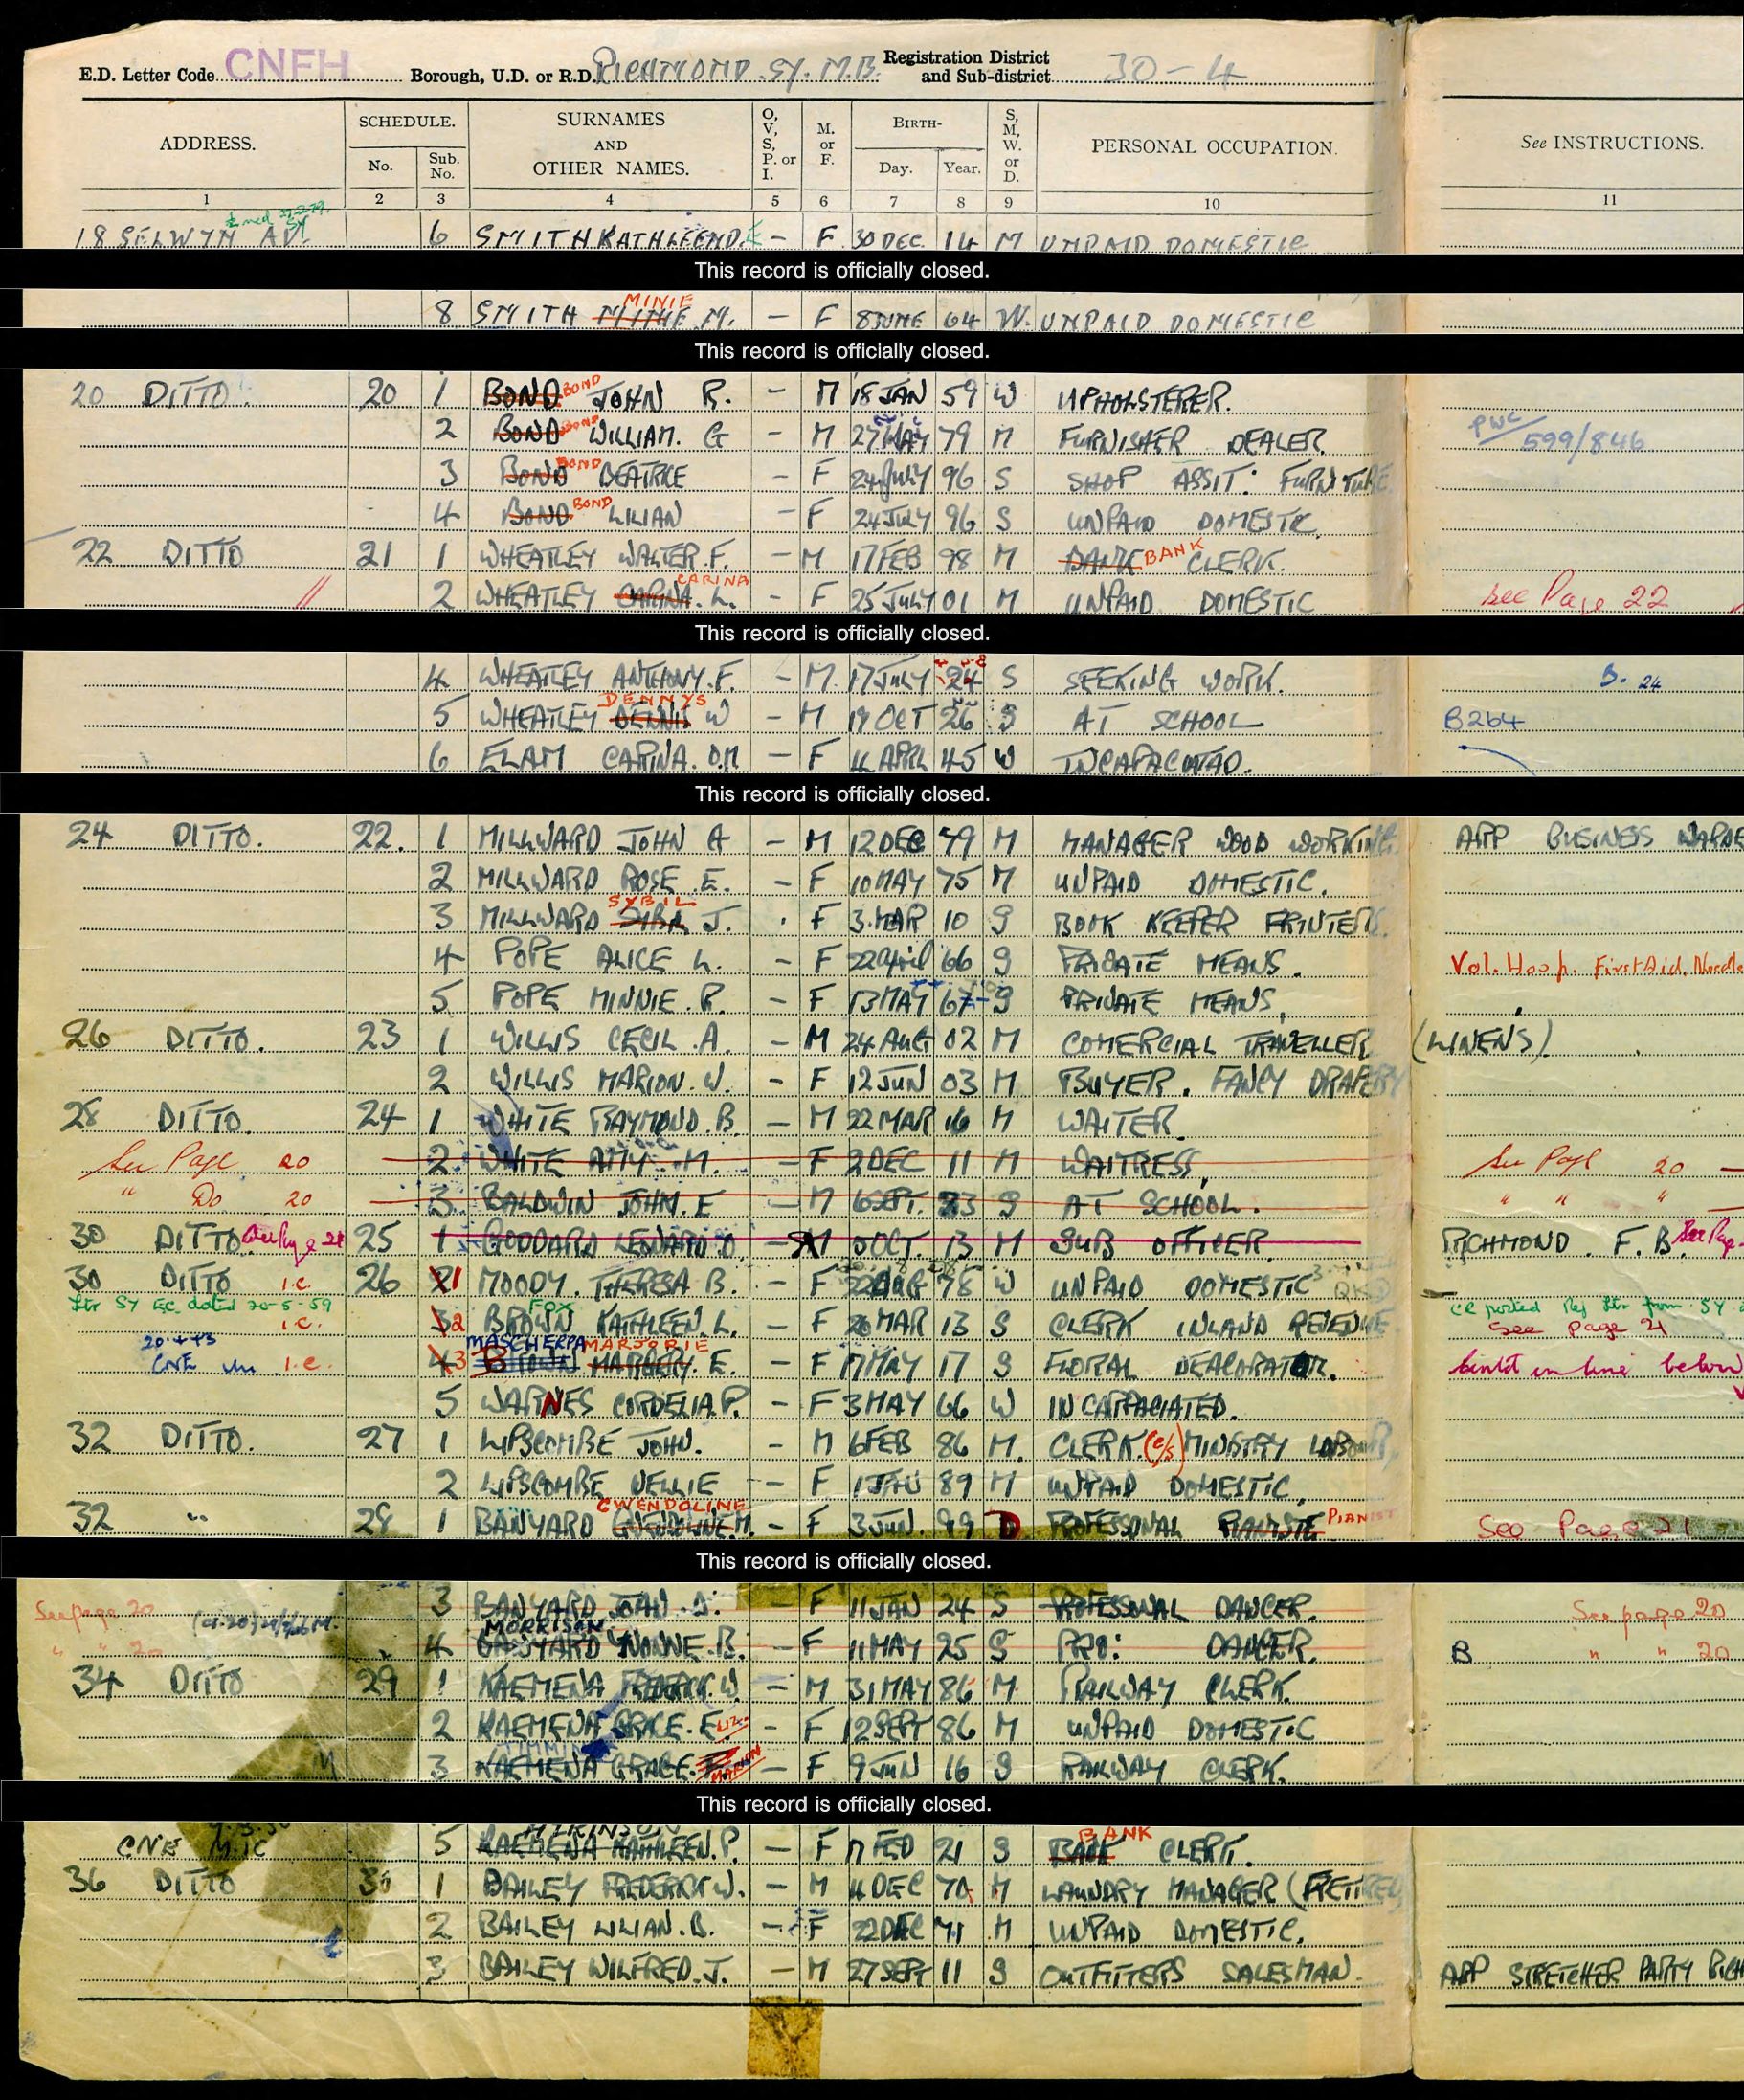 E.D. Letter Code CNFH Borough, U.D. or R.D. RICHMOND SY. M.B. Registration District and Sub-district 30-4
ADDRESS. SCHEDULE. No. Sub. No. SURNAMES AND OTHER NAMES. O, V, S, P. or I. M. or F. BIRTH- Day. Year. S, M, W. or D. PERSONAL OCCUPATION. See INSTRUCTIONS.
1 2 3 4 5 6 7 8 9 10 11
18 SELWYN AV. 6 SMITH KATHLEEN D. E - F 30 DEC. 14 M UNPAID DOMESTIC
This record is officially closed.
MINIE
8 SMITH M. - F 8 JUNE 64 W. UNPAID DOMESTIC
This record is officially closed.
20 DITTO 20 1 BOND BOND JOHN R. - M 18 JAN 59 W UPHOLSTERER.
2 BOND BOND WILLIAM. G - M 27 MAY 79 M FURNISHER DEALER PWC 599/846
3 BOND BOND BEATRICE - F 24 JULY 96 S SHOP ASSIT: FURNITURE
4 BOND BOND LILIAN - F 24 JULY 96 S UNPAID DOMESTC.
22 DITTO 21 1 WHEATLEY WALTER. F. - M 17 FEB 98 M BANK BANK CLERK.
CARINA
// 2 WHEATLEY CARINA. L. - F 25 JULY 01 M UNPAID DOMESTIC see Page 22
This record is officially closed.
4 WHEATLEY ANTHONY. F. - M. 17 JULY 24 S SEEKING WORK. B. 24
DENNYS
5 WHEATLEY DENNIS W - M 19 OCT 26 S AT SCHOOL B264
6 ELAM CARINA. O.M - F 4 APRL 45 W INCAPACATAD.
This record is officially closed.
24 DITTO. 22. 1 MILLWARD JOHN A - M 12 DEC 79 M MANAGER WOOD WORKING. ARP BUSINESS WARDE
2 MILLWARD ROSE. E. - F 10 MAY 75 M UNPAID DOMESTIC.
SYBIL
3 MILLWARD J. - F 3. MAR 10 S BOOK KEEPER PRINTERS.
4 POPE ALICE L. - F 22 April 66 S PRIVATE MEANS. Vol. Hosp. First Aid. Needle
5 POPE MINNIE. R. - F 13 MAY 67 - S PRIVATE MEANS,
26 DITTO. 23 1 WILLIS CECIL. A. - M 24 AUG 02 M COMERCIAL TRAVELLER (LINENS).
2 WILLIS MARION. W. - F 12 JUN 03 M BUYER. FANCY DRAPERY
28 DITTO. 24 1 WHITE RAYMOND. B. - M 22 MAR 16 M WAITER.
See Page 20 2 WHITE AMY. M. - F 2 DEC 11 M WAITRESS, See Page 20
" Do 20 3 BALDWIN JOHN. E - M 6 SEPT. 23 S AT SCHOOL. " " "
30 DITTO 25 1 GODDARD LEONARD. O. - M OCT. 13 M SUB OFFICER. RICHMOND. F. B. See Page
30 DITTO i.c. 26 1 MOODY. THERESA B. - F 22 AUG 78 W UNPAID DOMESTIC
Ltr SY EC. dated 20-5-59 FOX
i.c. 2 BROWN KATHLEEN. L. - F 26 MAR 13 S CLERK INLAND REVENUE See page 21
MASCHERPA MARJORIE
CNE i.c. 3 BROWN MARGERY. E. - F 17 MAY 17 S FLORAL DECORATOR. in line below
5 WARNES CORDELIA. P. - F 3 MAY 66 W INCAPPACIATED.
32 DITTO. 27 1 LIPSCOMBE JOHN. - M 6 FEB 86 M. CLERK. (C/S) MINISTRY LABOUR,
2 LIPSCOMBE NELLIE - F 1 JAN 89 M UNPAID DOMESTIC,
GWENDOLINE
32 " 28 1 BANYARD GWENDOLINE M. - F 3 JUN. 99 D PROFESSONAL PIANISTE PIANIST See Page 21
This record is officially closed.
See page 20 3 BANYARD JOAN. D. - F 11 JAN 24 S PROFESSONAL DANCER. See page 20
MORRISON
" " 20 4 BANYARD YVONNE. B. - F 11 MAY 25 S PRO: DANCER. B " " 20
34 DITTO 29 1 KAEMENA FREDERICK W. - M 31 MAY 86 M RAILWAY CLERK.
2 KAEMENA GRACE. E LIZ. - F 12 SEPT 86 M UNPAID DOMESTIC
3 KAEMENA GRACE. MARION - F 9 JUN 16 S RAILWAY CLERK.
This record is officially closed.
WILKINSON BANK
CNE M.IC 5 KAEMENA KATHLEEN. P. - F 17 FEB 21 S BANK CLERK.
36 DITTO 30 1 BAILEY FREDERICK W. - M 4 DEC 70 M LAUNDRY MANAGER (RETIRED)
2 BAILEY LILIAN. B. - F 22 DEC 71 M UNPAID DOMESTIC.
3 BAILEY WILFRED. J. - M 27 SEPT 11 S OUTFITTERS SALESMAN. ARP STRETCHER PARTY RICH